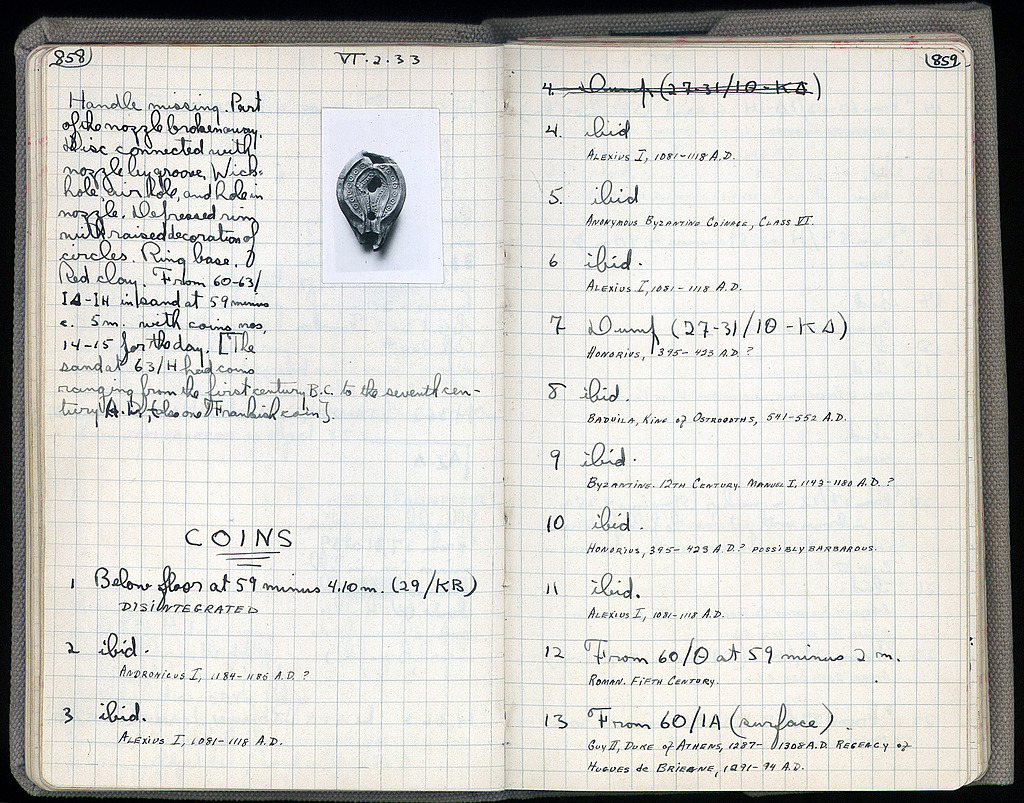 858
VI.2.33
Handle missing. Part
of the nozzle broken away.
Disc connected with
nozzle by groove. Wick-
hole, air hole, and hole in
nozzle. Depressed rim
with raised decoration of
circles. Ring base.
Red clay. From 60-63/
ΙΔ-ΙΗ in sand at 59 minus
c. 5m. with coins nos.
14-15 for the day. [The
sand at 63/Η had coins
ranging from the first century B.C. to the seventh cen-
tury A.D., also one Frankish coin].
COINS
1 Below floor at 59 minus 4.10 m. (29/ΚΒ)
DISINTEGRATED
2 ibid.
ANDRONICUS I, 1184-1185 A.D. ?
3 ibid.
ALEXIUS I, 1081-1118 A.D.
859
4. Dump (27-31/ΙΘ-ΚΔ)
4. ibid
ALEXIUS I, 1081-1118 A.D.
5. ibid
ANONYMOUS BYZANTINE COINAGE, CLASS VI.
6 ibid.
ALEXIUS I, 1081-1118 A.D.
7 Dump (27-31/ΙΘ-ΚΔ)
HONORIUS, 395-423 A.D. ?
8 ibid.
BADUILA, KING of OSTROGOTHS, 541-552 A.D.
9 ibid.
BYZANTINE. 12TH CENTURY. MANUEL I, 1143-1180 A.D. ?
10 ibid.
HONORIUS, 395-423 A.D. ? POSSIBLY BARBAROUS.
11 ibid.
ALEXIUS I, 1081-1118 A.D.
12 From 60/Θ at 59 minus 2 m.
ROMAN. FIFTH CENTURY.
13 From 60/ΙΑ (surface).
GUY II, DUKE of ATHENS, 1287-1308 A.D. REGENCY of
HUGUES de BRIENNE, 1291-94 A.D.